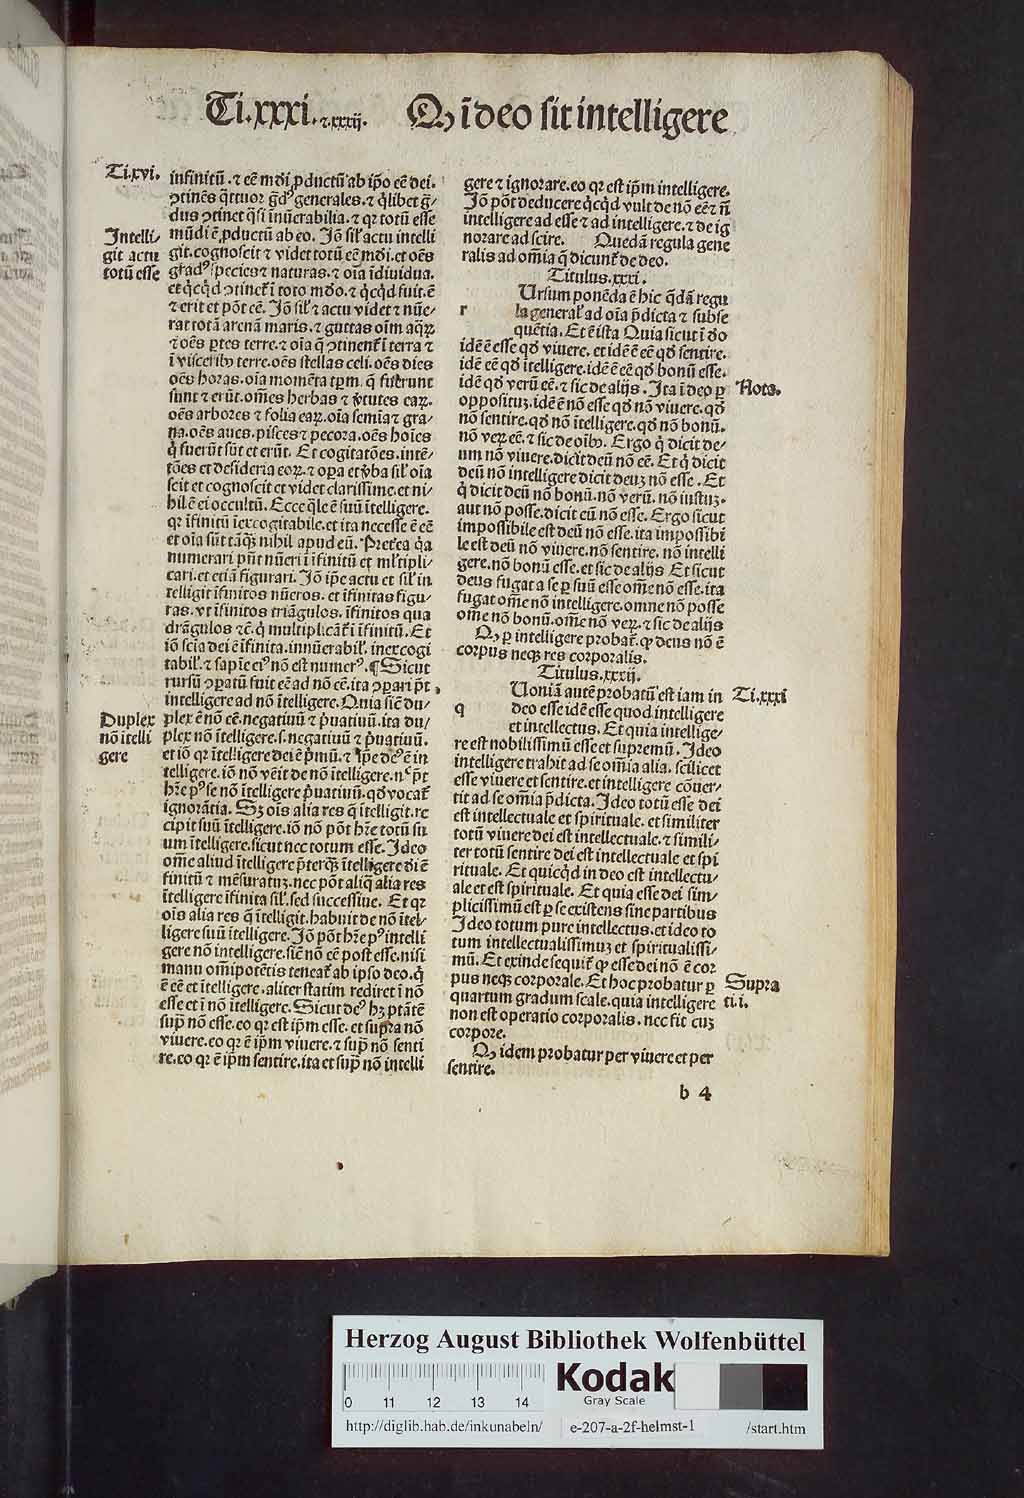 Ti.xxxi.⁊.xxxij. Q, ĩ deo sit intelligere
Ti.xvi.
infinitũ.⁊ eẽ mũdi ꝓductũ ab ipõ eẽ dei.
ꝯtinẽs q̃ttuor g̃dꝰ generales.⁊ q̃libet g̃/
dus ꝯtinet q̃si inũerabilia.⁊ qꝛ totũ esse
Intelli/
git actu
totũ esse
mũdi ẽ ꝓductũ ab eo. Jõ sil̕ actu intelli
git.cognoscit ⁊ videt totũ eẽ mũdi.et oẽs
gradꝰ species ⁊ naturas.⁊ oĩa ĩdiuidua.
et q̃cq̃d ꝯtinet̃ ĩ toto mũdo.⁊ q̃cq̃d fuit.ẽ
⁊ erit et põt eẽ. Jõ sil̕ ⁊ actu videt ⁊ nũe/
rat totã arenã maris.⁊ guttas oĩm aq̃ꝝ
⁊ oẽs ꝑtes terre.⁊ oĩa q̃ ꝯtinent̃ ĩ terra ⁊
ĩ visceribꝰ terre.oẽs stellas celi.oẽs dies
oẽs horas.oĩa momẽta tꝑm. q̃ fuerunt
sunt ⁊ erũt.om̃es herbas ⁊ ṽtutes eaꝝ.
oẽs arbores ⁊ folia eaꝝ.oĩa semĩa ⁊ gra/
na.oẽs aues.pisces ⁊ pecora.oẽs hoĩes
q̃ fuerũt sũt et erũt. Et cogitatões.intẽ/
tões et desideria eoꝝ.⁊ oꝑa et ṽba sil̕ oĩa
scit et cognoscit et videt clarissime.et ni/
hil ẽ ei occultũ. Ecce q̃le ẽ suũ ĩtelligere.
qꝛ ĩfinitũ ĩexcogitabile.et ita necesse ẽ eẽ
et oĩa sũt tãq̃ꝫ nihil apud eũ. Pret̃ea q̃a
numerari pñt nũeri ĩ ĩfinitũ et ml̕tipli/
cari.et etiã figurari. Jõ ip̃e actu et sil̕ in
telligit ĩfinitos nũeros.et ĩfinitas figu/
ras.vt ĩfinitos triãgulos.ĩfinitos qua
drãgulos ⁊c̃.q̃ multiplicãt̃ ĩ ĩfinitũ. Et
iõ scĩa dei ẽ ĩfinita.innũerabil̕.inexcogi
tabil̕.⁊ sapĩe eiꝰ nõ est numerꝰ. ¶Sicut
rursũ ꝯꝑatũ fuit eẽ ad nõ eẽ.ita ꝯꝑari põt
intelligere ad nõ ĩtelligere. Quia sic̃ du/
Duplex
nõ ĩtelli
gere
plex ẽ nõ eẽ.negatiuũ ⁊ p̃uatiuũ.ita du/
plex nõ ĩtelligere.s.negatiuũ ⁊ p̃uatiuũ.
et iõ qꝛ ĩtelligere dei ẽ p̃mũ.⁊ ip̃e deꝰ ẽ in
telligere.iõ nõ vẽit de nõ ĩtelligere.nec põt
hr̃e pꝰ se nõ ĩtelligere p̃uatiuũ.qð vocat̃
ignorãtia. Sꝫ oĩs alia res q̃ ĩtelligit.re
cipit suũ ĩtelligere.iõ nõ põt hr̃e totũ su
um ĩtelligere.sicut nec totum esse. Jdeo
om̃e aliud ĩtelligere p̃terq̃ꝫ ĩtelligere dei ẽ
finitũ ⁊ mẽsuratuꝫ.nec põt aliq̃ alia res
ĩtelligere ĩfinita sil̕.sed successiue. Et qꝛ
oĩs alia res q̃ ĩtelligit.habuit de nõ ĩtel/
ligere suũ ĩtelligere. Jõ põt hr̃e pꝰ intelli
gere nõ intelligere.sic̃ nõ eẽ post esse.nisi
manu om̃ipotẽtis teneat̃ ab ipso deo.q̃
ẽ eẽ et ĩtelligere.aliter statim rediret ĩ nõ
esse et ĩ nõ ĩtelligere. Sicut deꝰ hꝫ ptãtẽ
sup̃ nõ esse.eo qꝛ est ip̃m esse.et supra nõ
viuere.eo qꝛ ẽ ip̃m viuere.⁊ sup̃ nõ senti
re.eo qꝛ ẽ ip̃m sentire.ita et sup̃ nõ intelli
gere ⁊ ignorare.eo qꝛ est ip̃m intelligere.
Jõ põt deducere q̃cq̃d vult de nõ eẽ ⁊ ñ
intelligere ad esse ⁊ ad intelligere.⁊ de ig
norare ad scire. Quedã regula gene
ralis ad om̃ia q̃ dicunt̃ de deo.
Titulus.xxxi.
r Ursum ponẽda ẽ hic q̃dã regu
la general̕ ad oĩa p̃dicta ⁊ subse
quẽtia. Et ẽ ista Quia sicut ĩ deo
idẽ ẽ esse qð viuere.et idẽ ẽ eẽ qð sentire.
idẽ eẽ qð ĩtelligere.idẽ ẽ eẽ qð bonũ esse.
idẽ qð verũ eẽ.⁊ sic de alijs. Ita ĩ deo ꝑ
Nota.
oppositũꝫ.idẽ ẽ nõ esse qð nõ viuere.qð
nõ sentire.qð nõ ĩtelligere.qð nõ bonũ.
nõ veꝝ eẽ.⁊ sic de oĩbꝰ. Ergo q̃ dicit de/
um nõ viuere.dicit deũ nõ eẽ. Et q̃ dicit
deũ nõ intelligere dicit deuꝫ nõ esse. Et
q̃ dicit deũ nõ bonũ.nõ verũ.nõ iustuꝫ.
aut nõ posse.dicit eũ nõ esse. Ergo sicut
impossibile est deũ nõ esse.ita impossibi
le est deũ nõ viuere.nõ sentire.nõ intelli
gere.nõ bonũ esse.et sic de alijs Et sicut
deus fugat a se ꝑ suũ esse om̃e nõ esse.ita
fugat om̃e nõ intelligere.omne nõ posse
om̃e nõ bonũ.om̃e nõ veꝝ.⁊ sic de alijs
Q, ꝑ intelligere probat̃.ꝙ deus nõ ẽ
corpus neqꝫ res corporalis.
Titulus.xxxij.
q Uoniã autẽ probatũ est iam in
Ti.xxxi
deo esse idẽ esse quod intelligere
et intellectus. Et quia intellige/
re est nobilissimũ esse et supremũ. Jdeo
intelligere trahit ad se om̃ia alia. scilicet
esse viuere et sentire.et intelligere cõuer/
tit ad se om̃ia p̃dicta. Jdeo totũ esse dei
est intellectuale et spirituale. et similiter
totũ viuere dei est intellectuale.⁊ simili/
ter totũ sentire dei est intellectuale et spi
rituale. Et quicq̃d in deo est intellectu/
ale et est spirituale. Et quia esse dei sim/
plicissimũ est ꝑ se existens sine partibus
Jdeo totum pure intellectus.et ideo to
tum intellectualissimuꝫ et spiritualissi/
mũ. Et exinde sequit̃ ꝙ esse dei nõ ẽ cor
pus neqꝫ corporale. Et hoc probatur ꝑ
Supra
ti.i.
quartum gradum scale.quia intelligere
non est operatio corporalis.nec fit cuꝫ
corpore.
Q, idem probatur per viuere et per
sentire.
b 4
Herzog August Bibliothek Wolfenbüttel
Kodak
Gray Scale
0 11 12 13 14
http://diglib.hab.de/inkunabeln/ e-207-a-2f-helmst-1 /start.htm